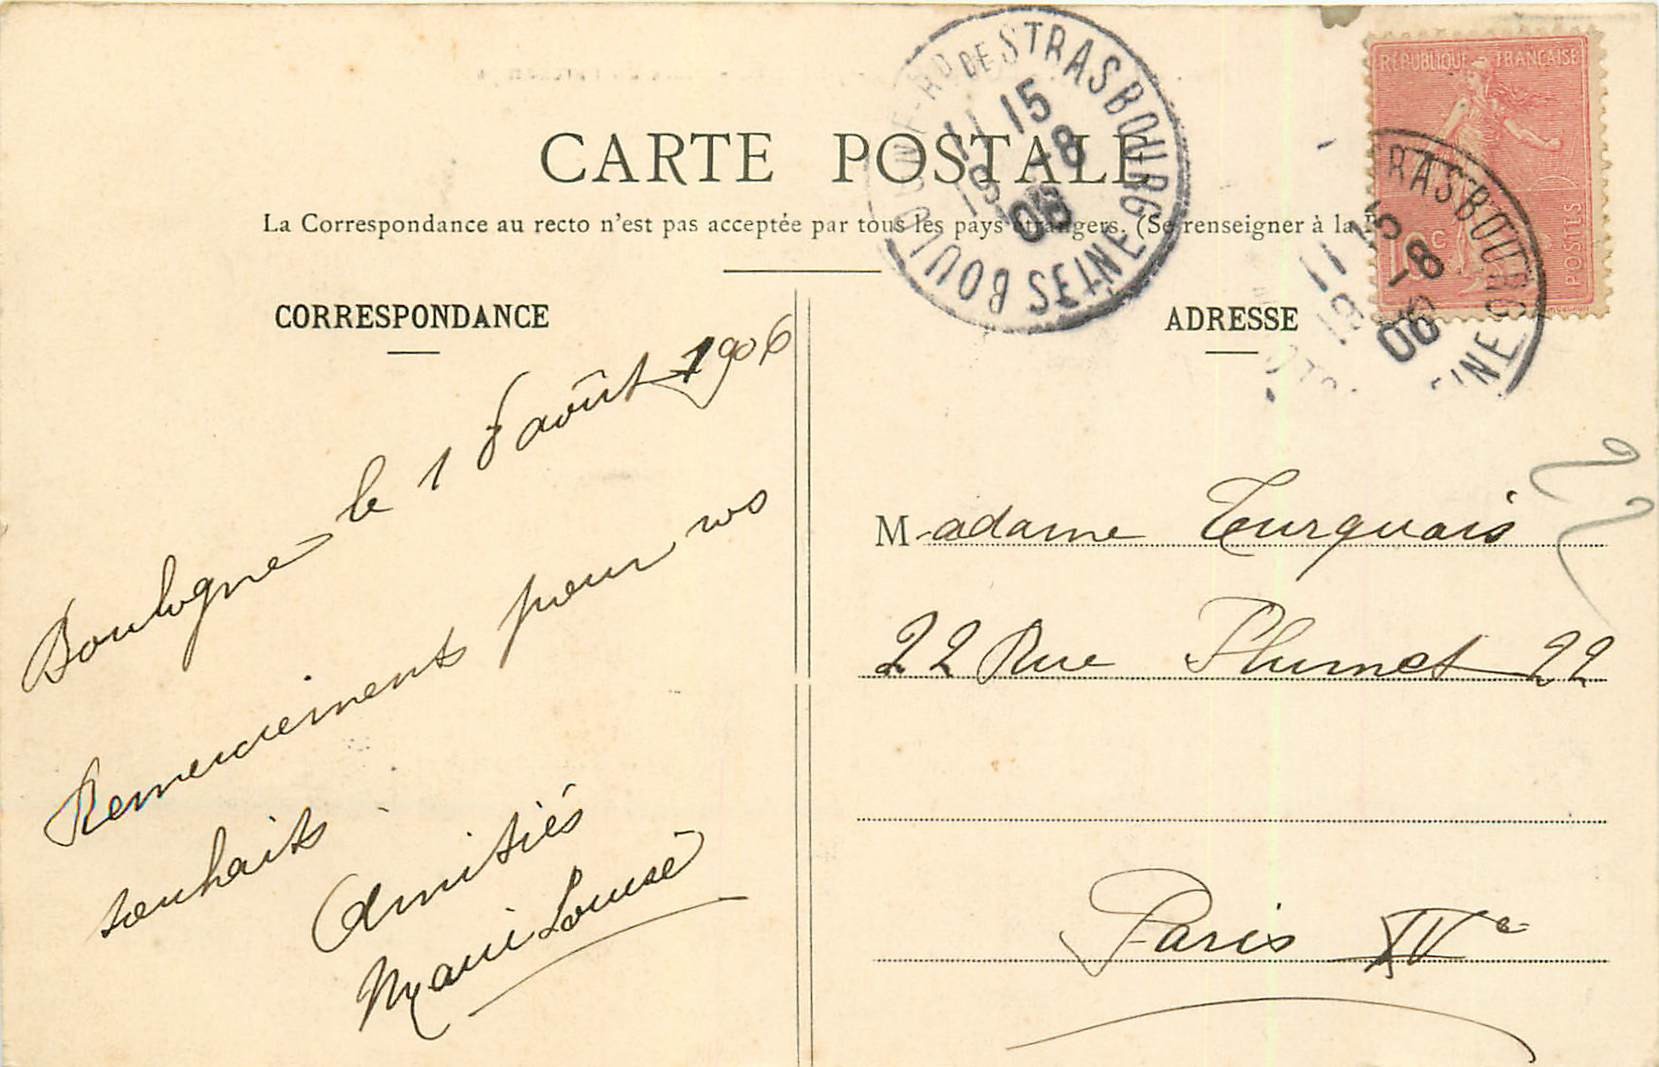 CARTE POSTALE
La Correspondance au recto n'est pas acceptée par tous les pays étrangers. (Se renseigner à la P
CORRESPONDANCE
Boulogne le 1 août 1906
Remerciements pour vos
souhaits.
Amitiés
Marie Louise
ADRESSE
Madame Turquais
22 Rue Plumet 22
Paris XVe
22
REPUBLIQUE FRANÇAISE
10c
POSTES
BOULOGNE-RD DE STRASBOURG
SEINE
11 15
15-8
06
STRASBOURG
11 15
15-8
06
SEINE